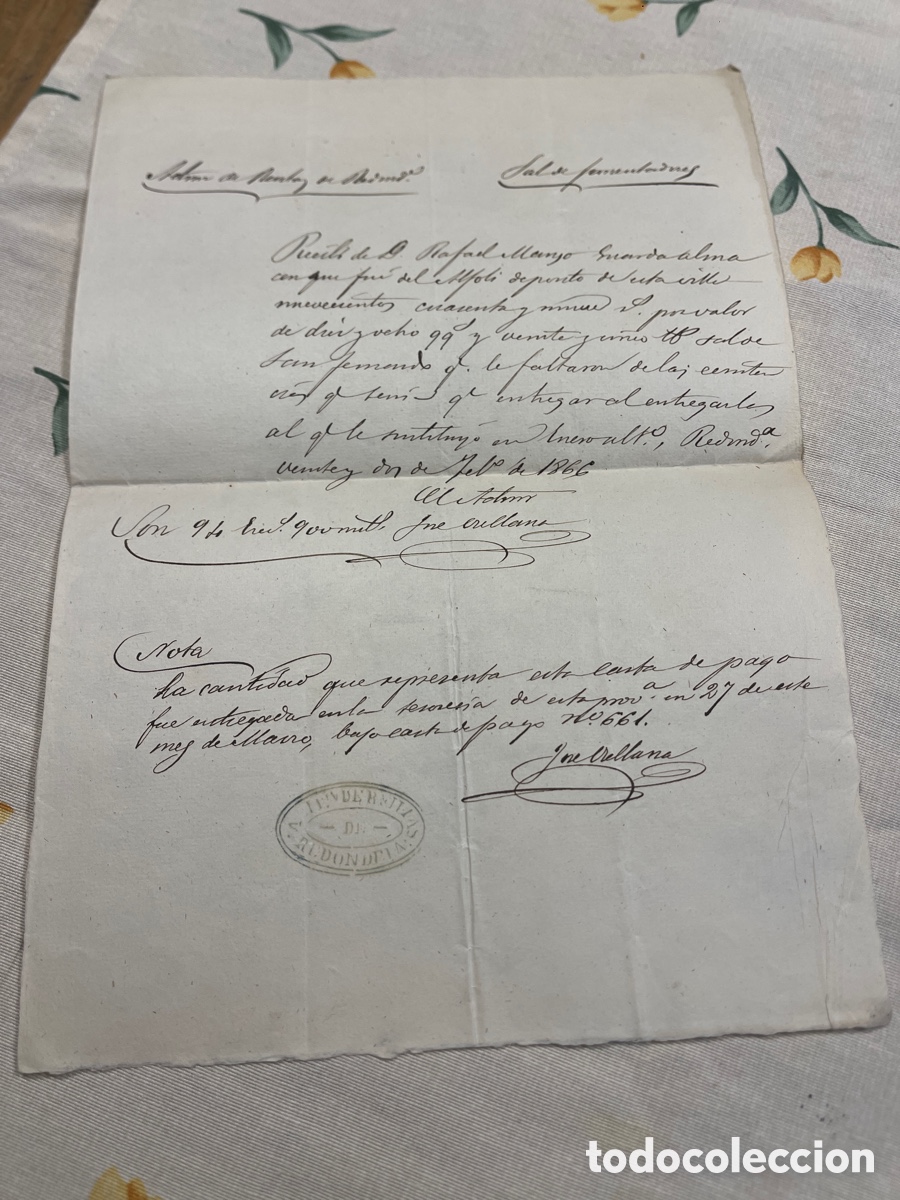 Admon de Rentas de Redond.ª
Sal de fomentadores
Recibí de D. Rafael Manso Guarda alma
cen que fué del Alfolí deposito de esta villa
nuevecientos cuarenta y nueve r.s por valor
de diez y ocho qq.s y veinte y cinco lb sal de
San Fernando q.e le faltaron de las
q.e entregar al entregarlas
al q.e le sustituyó en Enero ult.º, Redond.ª
veinte y dos de Feb.º de 1866
El Admor
Son 94 Esc.s 900 mil.s José Orellana
Nota
La cantidad que representa esta carta de pago
fue entregada en la tesoreria de esta prov.ª en 27 de este
mes de Marzo, bajo carta de pago nº 661.
José Orellana
DE
REDONDELA
todocoleccion